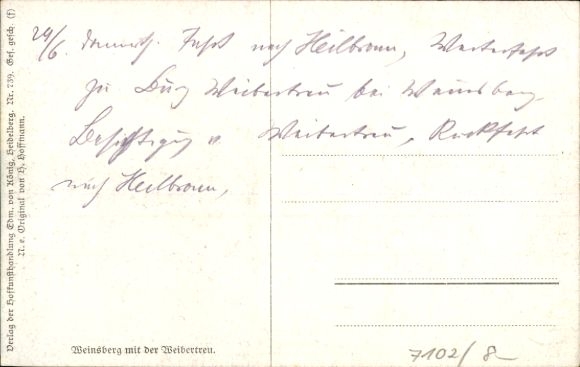 29/6. Donnerst. Fahrt nach Heilbronn, Weiterfahrt
zu Burg Weibertreu bei Weinsberg,
Besichtigung v. Weibertreu, Rückfahrt
nach Heilbronn,
Weinsberg mit der Weibertreu.
7102/8-
Verlag der Hofkunsthandlung Edm. von König, Heidelberg. Nr. 739. Ges. gesch. (f)
N. e. Original von H. Hoffmann.